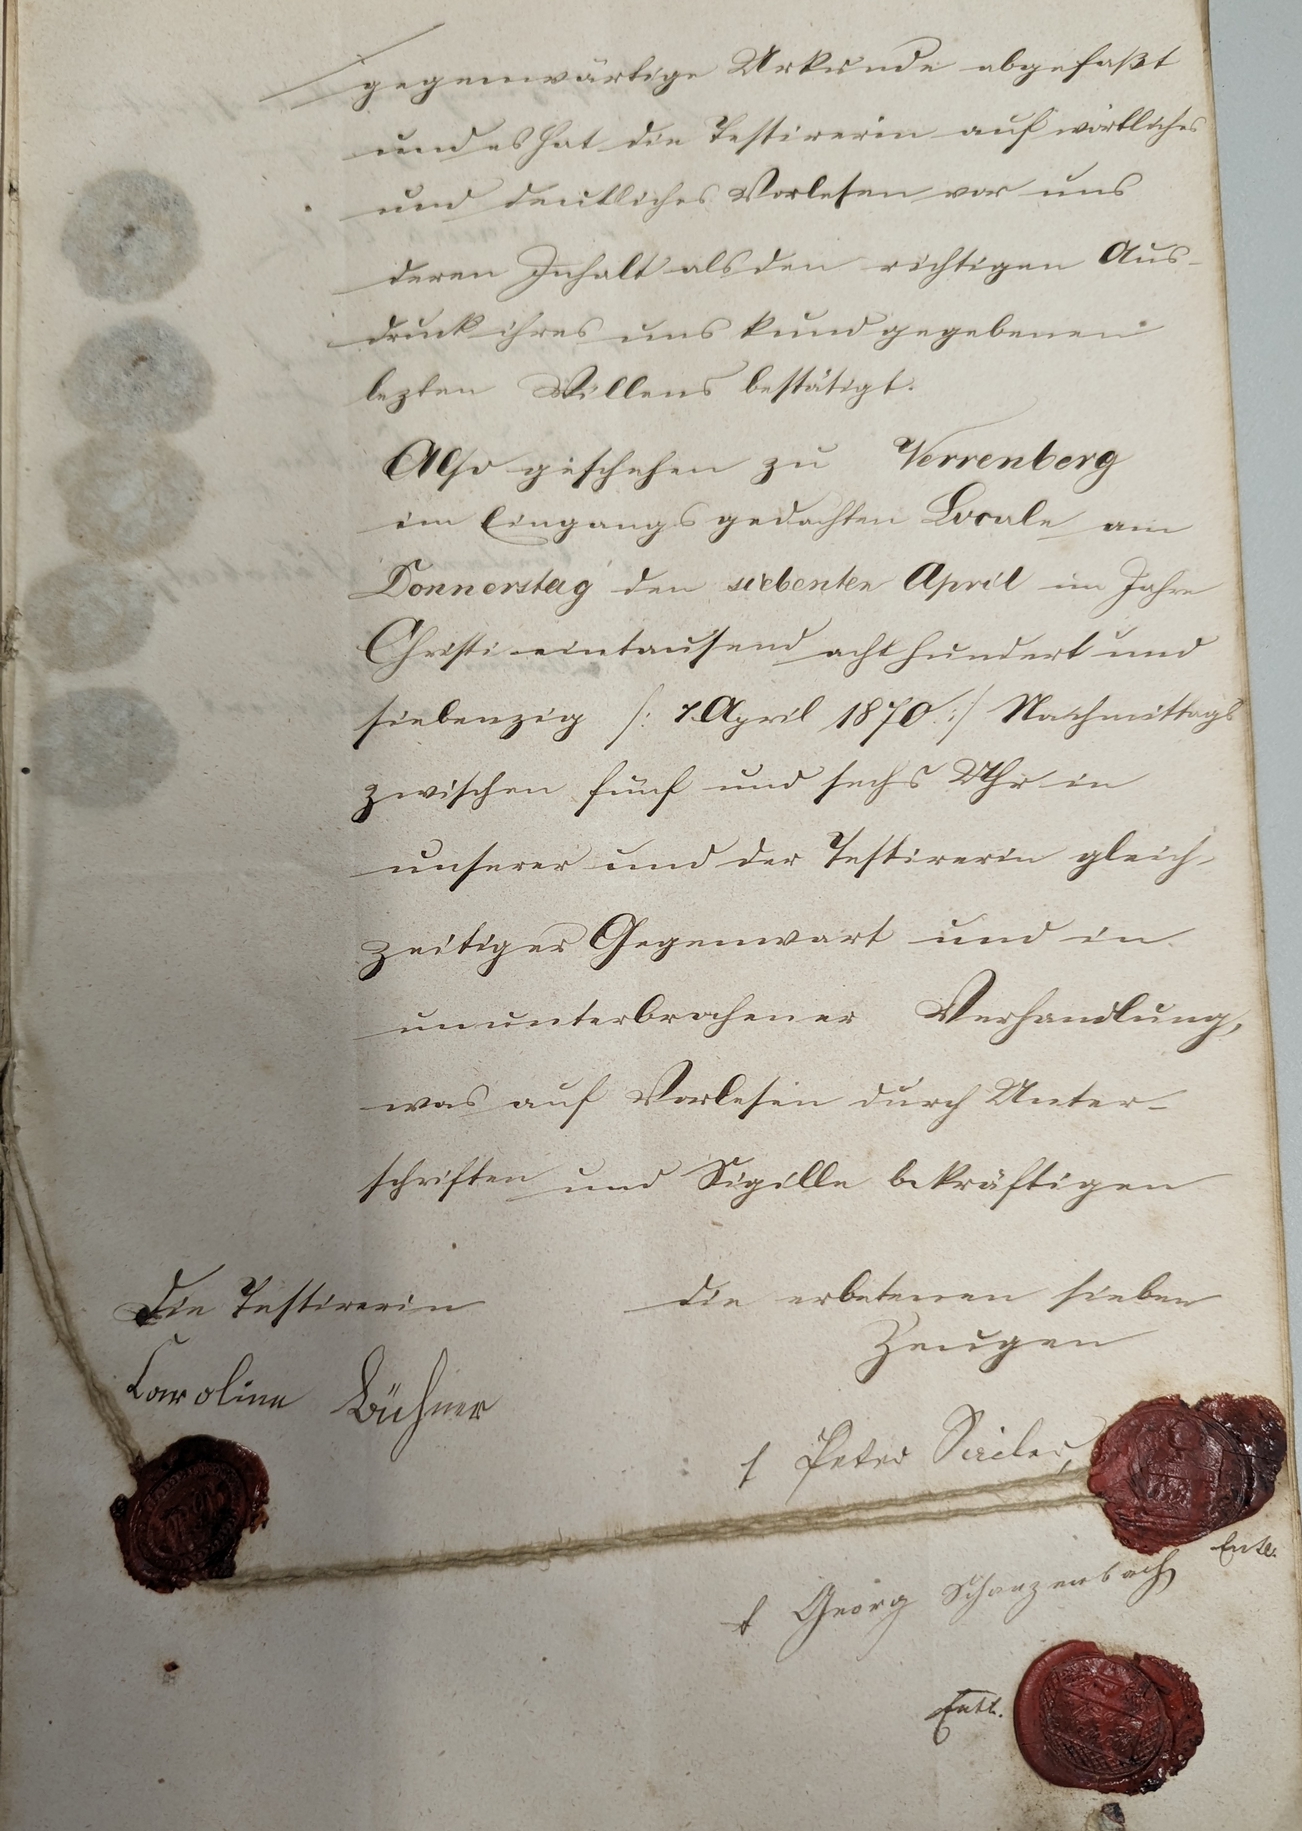 gegenwärtige Urkunde abgefaßt
und es hat die Testirerin auf wörtliches
und deutliches Vorlesen vor uns
deren Inhalt als den richtigen Aus-
druck ihres uns kund gegebenen
lezten Willens bestätigt.
Also geschehen zu Verrenberg
im Eingangs gedachten Locale am
Donnerstag den siebenten April im Jahre
Christi eintausend acht hundert und
siebenzig /: 7. April 1870 :/ Nachmittags
zwischen fünf und sechs Uhr in
unserer und der Testirerin gleich-
zeitiger Gegenwart und in
ununterbrochener Verhandlung,
was auf Vorlesen durch Unter-
schriften und Sigille bekräftigen
Die Testirerin
Caroline Büchner
die erbetenen sieben
Zeugen
1 Peter
Georg Schanzenbach